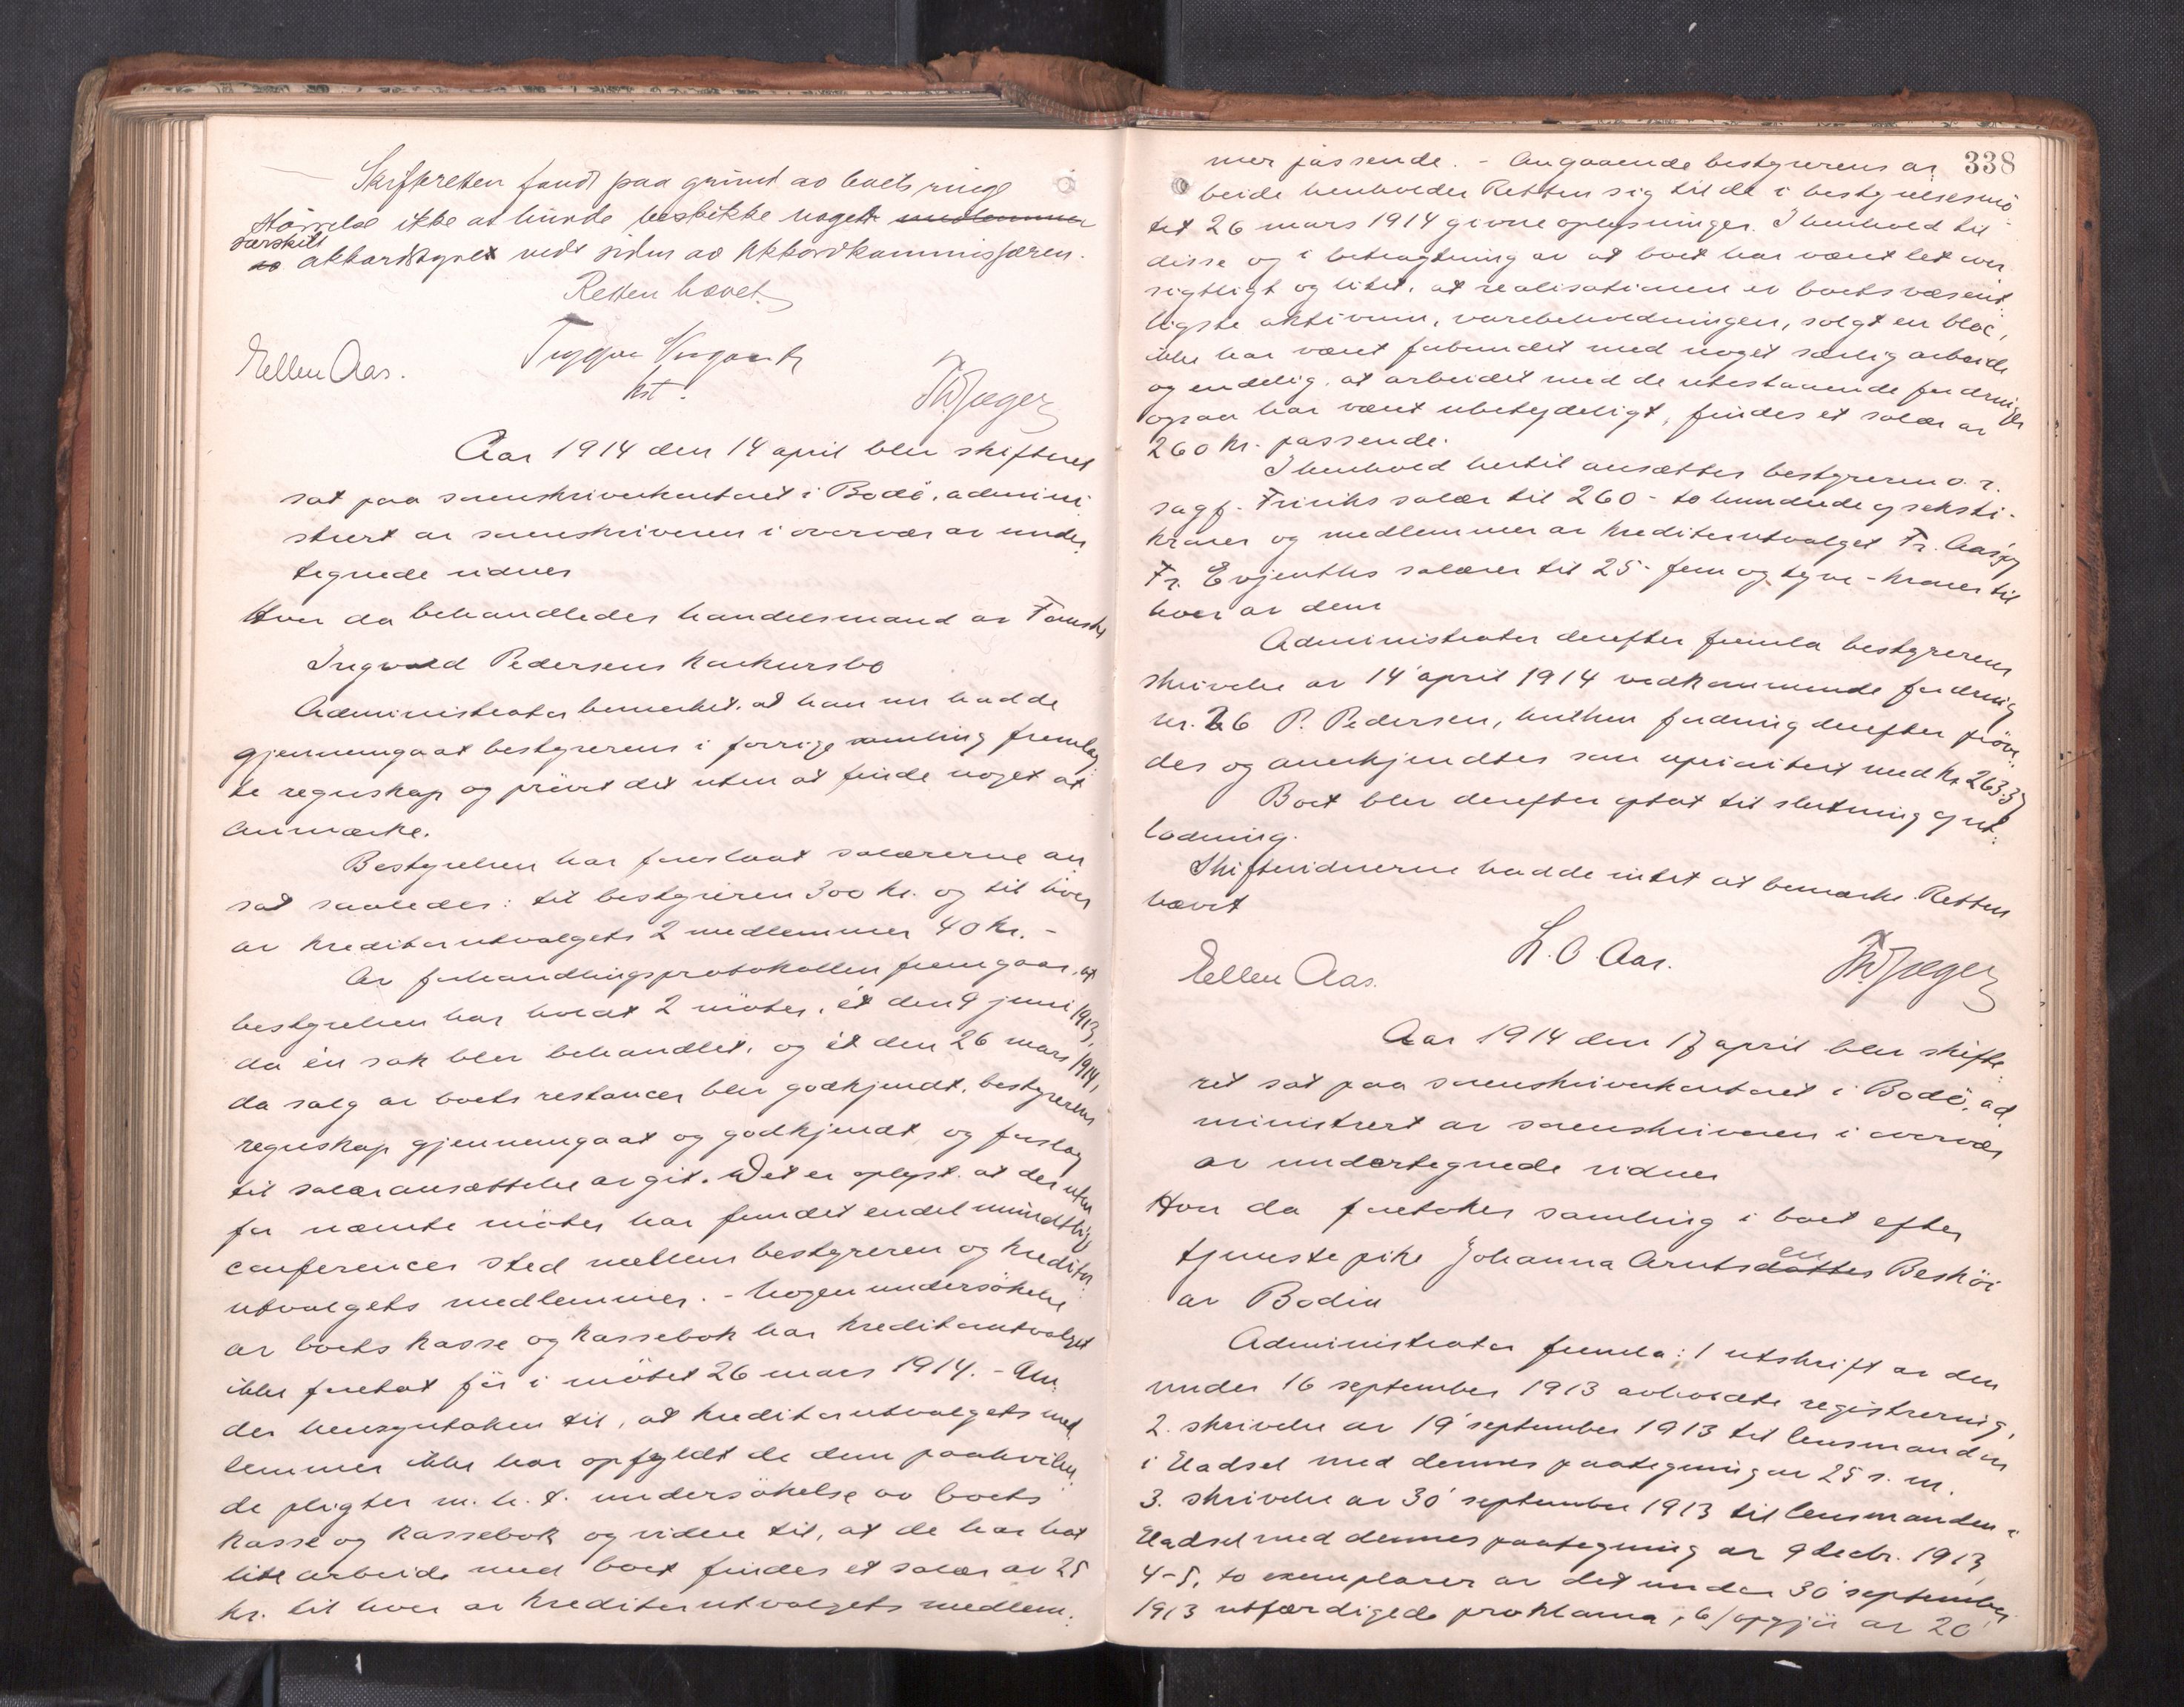 Skifteretten fandt paa grund av boets ringe
Størrelse ikke at burde beskikke noget medlemmer
særskilt
av akkordstyret ved siden av Akkordkommissæren.
Retten hævet.
Ellen Aas.
kst.
Th. Jæger
Aar 1914 den 14 april blev skifteret
sat paa sorenskriverkontoret i Bodö, admini-
strert av sorenskriveren i overvær av under-
tegnede vidner
Hvor da behandledes handelsmand av Fauske
Ingvald Pedersens konkursbo
Administrator bemerket, at han nu hadde
gjennemgaat bestyrerens i forrige samling fremlag-
te regnskap og prövet det uten at finde noget at
anmærke.
Bestyrelsen har foreslaat salærerne an-
sat saaledes: til bestyreren 300 kr. og til hver
av kreditorutvalgets 2 medlemmer 40 kr. -
Av forhandlingsprotokollen fremgaar, at
bestyrelsen har holdt 2 möter, ét den 9 juni 1913,
da én sak blev behandlet, og ét den 26 mars 1914,
da salg av boets restancer blev godkjendt, bestyrerens
regnskap gjennemgaat og godkjendt og forslag
til salæransættelse avgit. Det er oplyst, at der uten-
for nævnte möter har fundet endel mundtlige
conferencer sted mellem bestyreren og kreditor-
utvalgets medlemmer. - Nogen undersökelse
av boets kasse og kassebok har kreditorutvalget
ikke foretat för i mötet 26 mars 1914. - Un-
der hensyntaken til, at kreditorutvalgets med-
lemmer ikke har opfyldt de dem paahvilen-
de pligter m. h. t. undersökelse av boets
kasse og kassebok og videre til, at de har hat
lite arbeide med boet findes et salær av 25
kr. til hver av kreditorutvalgets medlem-
338
mer passende. - Angaaende bestyrerens ar-
beide henholder Retten sig til de i bestyrelsesmö-
tet 26 mars 1914 givne oplysninger. I henhold til
disse og i betragtning av at boet har været let over-
sigtligt og litet, at realisationen av boets væsent-
ligste aktivum, varebeholdningen, solgt en bloc,
ikke har været forbundet med noget særlig arbeide
og endelig, at arbeidet med de utestaaende fordringer
ogsaa har været ubetydeligt, findes et salær av
260 kr. passende.
I henhold hertil ansættes bestyreren o. r.
sagf. Friniks salær til 260 - to hundrede og seksti -
kroner og medlemmer av kreditorutvalget Fr. Aas og
Fr. Evjenths salærer til 25 - fem og tyve - kroner til
hver av dem
Administrator derefter fremla bestyrerens
skrivelse av 14' april 1914 vedkommende fordring
nr. 26 P. Pedersen, hvilken fordring derefter pröve-
des og anerkjendtes som uprioritert med kr. 263.37
Boet blev derefter optat til slutning og ut-
lodning.
Skiftevidnerne hadde intet at bemærke. Retten
hævet
Ellen Aas.
L. O. Aas.
Th. Jæger
Aar 1914 den 17 april blev skifte-
ret sat paa sorenskriverkontoret i Bodö, ad-
ministrert av sorenskriveren i overvær
av undertegnede vidner
Hvor da foretokes samling i boet efter
en
tjenestepike Johanna Arntsdatter Besköi
av Bodin
Administrator fremla: 1 utskrift av den
under 16 september 1913 avholdte registrering,
2. skrivelse av 19' september 1913 til lensmanden
i Hadsel med dennes paategning av 25 s. m.
3. skrivelse av 30' september 1913 til lensmanden i
Hadsel med dennes paategning av 9 decbr. 1913,
4-5, to exemplarer av det under 30' september
1913 utfærdigede proklama, 6/ opgjör av 20